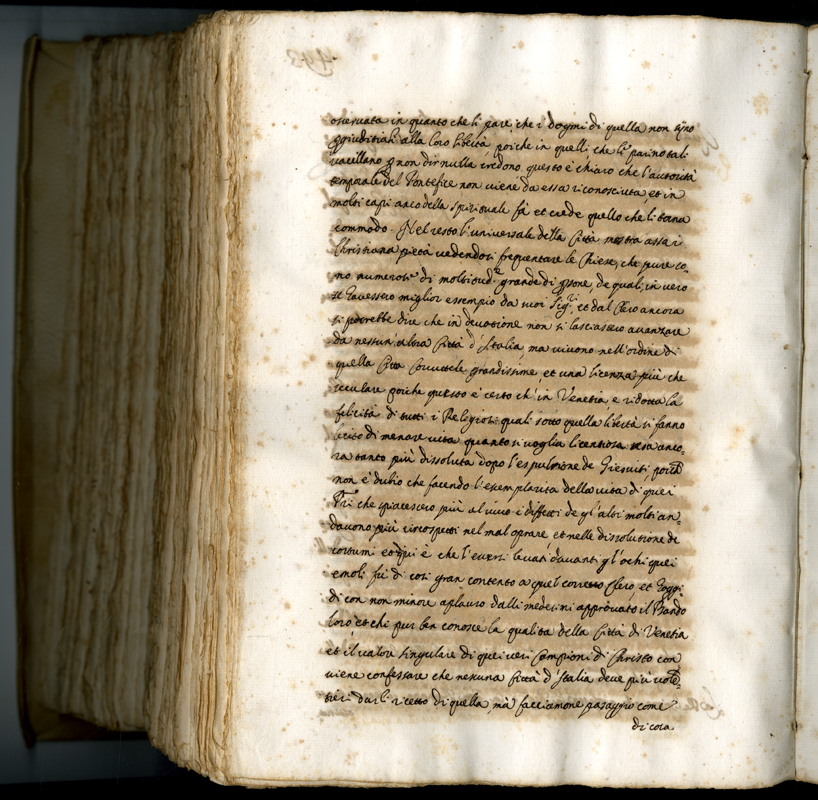 osservata in quanto che li pare, che i dogmi di quella non siano
pregiuditiali alla loro libertà, poiche in quelli, che li parino tali
vacillano per non dir nulla credono questo è chiaro che l'autorità
temporale del Pontefice non viene da essa riconosciuta et in
molti capi anco della Spirituale fà et crede quello che li torna
commodo. Nel resto l'universale della Città mostra assai
Christiana pietà vedendosi frequentare le Chiese, che pure so-
no numerose di moltitud.e grande di persone, de quali, in vero
se havessero miglior essempio da suoi Sig.ri, et dal Clero ancora
si potrebbe dire che in devotione non si lasciassero avanzare
da nessun'altra Città d'Italia, ma vivono nell'ordine di
quella Città Corruttele grandissime, et una licenza più che
seculare poiche questo è certo ch'in Venetia, e ridotta la
felicità di tutti i Relegiosi quali sotto quella libertà si fanno
lecito di menare vita quanto si voglia licentiosa resa anco-
ra tanto più dissoluta dopo l'espulsione de Giesuiti, poiche
non è dubio che facendo l'esemplarità della vita di quei
Pri che spiacessero più al vivo i diffetti de gl'altri molti an-
davono più circospetti nel mal oprare et nelle dissolutione di
costumi et qui è che l'eversi levati davanti gl'ochi quei
emoli fù di così gran contento a quel corretto Clero, et hoggi
di con non minore aplauso dalli medesimi approvato il Bando
loro et chi pur ben conosce la qualità della Città di Venetia
et il valore singulare di quei veri Campioni di Christo con
viene confessare che nessuna Città d'Italia deve più volen-
tieri darli ricetto di quella, mà facciamone passaggio come
di cosa